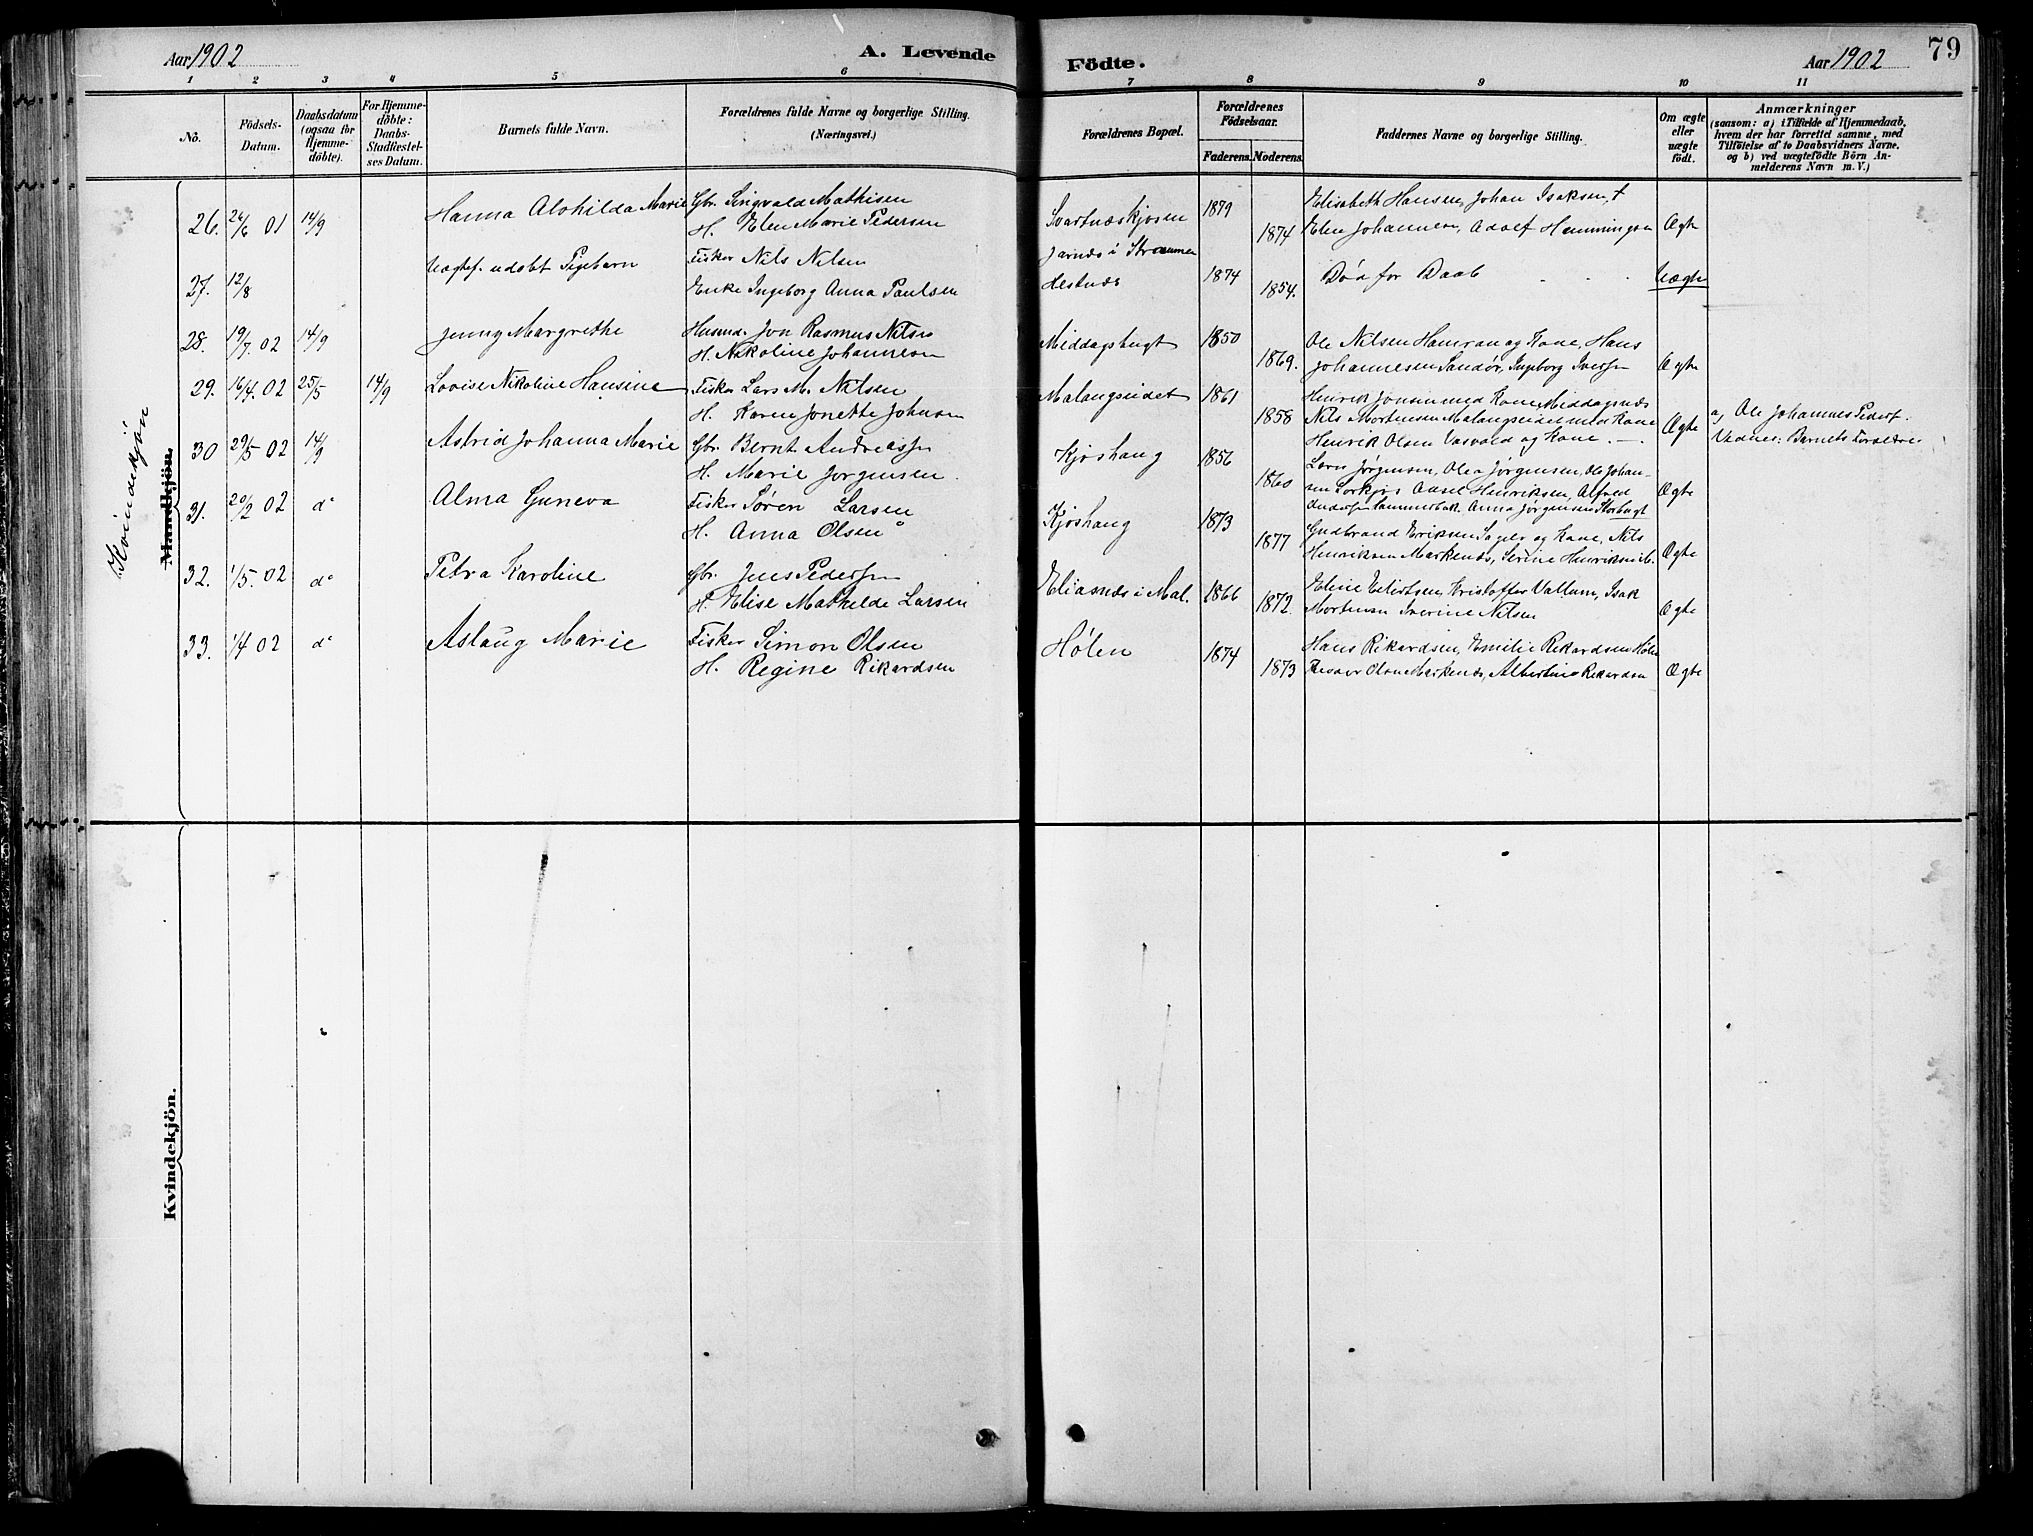 Aar 1902
A. Levende
Födte.
Aar 1902
79
1 2 3 4 5 6 7 8 9 10 11
No.
Födsels-
Datum.
Daabsdatum
(ogsaa for
Hjemme-
döbte).
For Hjemme-
döbte:
Daabs-
Stadfæstel-
ses Datum.
Barnets fulde Navn.
Forældrenes fulde Navne og borgerlige Stilling.
(Næringsvei.)
Forældrenes Bopæl.
Forældrenes
Födselsaar.
Faderens. Moderens.
Faddernes Navne og borgerlige Stilling.
Om ægte
eller
uægte
födt.
Anmærkninger
(saasom: a) i Tilfælde af Hjemmedaab,
hvem der har forrettet samme, med
Tilföielse af to Daabsvidners Navne.
og b) ved uægtefödte Börn An-
melderens Navn m. V.)
Kvindekjön
Mandkjön.
26. 26/6 01 14/9 Hanna Alohilda Marie Gbr. Singvald Mathisen
H. Elen Marie Pedersen
Svartnæskjosen 1879 1874
Elisabeth Hansen, Johan Isaksen, +
Elen Johannesen, Adolf Hemmingsen Ægte
27. 12/8 Uægtef. udøbt Pigebarn Fisker Nils Nilsen
Enke Ingeborg Anna Paulsen
Jarnæs i Strømmen
Hestnæs 1874 1854. Død før Daab Uægte
28. 19/7. 02 14/9 Jenny Margrethe Husmd. Jon Rasmus Nilsen
H. Nikoline Johannesen
Middagsbugt 1850 1869.
Ole Nilsen Hamran og Kone, Hans
Johannesen Sandør, Ingeborg Iversen Ægte
29. 16/4. 02 25/5 14/9 Lovise Nikoline Hansine Fisker Lars M. Nilsen
H. Karen Jonette Johnsen
Malangseidet 1861 1858
Henrik Jonsen med Kone, Middagsnæs
Nils Mortensen Malangseidet med Kone
Henrik Olsen Vasvold og Kone. Ægte
a, Ole Johannes Peders.
Vidner: Barnets Forældre
30 29/5 02 14/9 Astrid Johanna Marie Gbr. Bernt Andreassen
H. Marie Jørgensen.
Kjoshaug 1856 1860
Lars Jørgensen, Olea Jørgensen, Ole Johan-
sen Henriksen, Alfred
Anna Jørgensen Storbugt Ægte
31. 20/2 02 do Alma Guneva Fisker Søren Larsen
H. Anna Olsen
Kjoshaug 1873 1877
Gudbrand Eriksen og Kone, Nils
Henriksen Markenæs, Serine Henriksen M. Ægte
32. 1/5. 02 do Petra Karoline Gbr. Jens Pedersen
H. Elise Mathilde Larsen
Eliasnæs i Mal. 1866 1872.
Eline Eilertsen, Kristoffer Vollum, Isak
Mortensen Iverine Nilsen Ægte
33. 1/4 02 do Aslaug Marie Fisker Simon Olsen
H. Regine Rikardsen
Hølen 1874 1873
Hans Rikardsen, Emilie Rikardsen Hølen
Teodor Olsen Markenæs, Albertine Rikardsen Ægte
Kvindekjön.